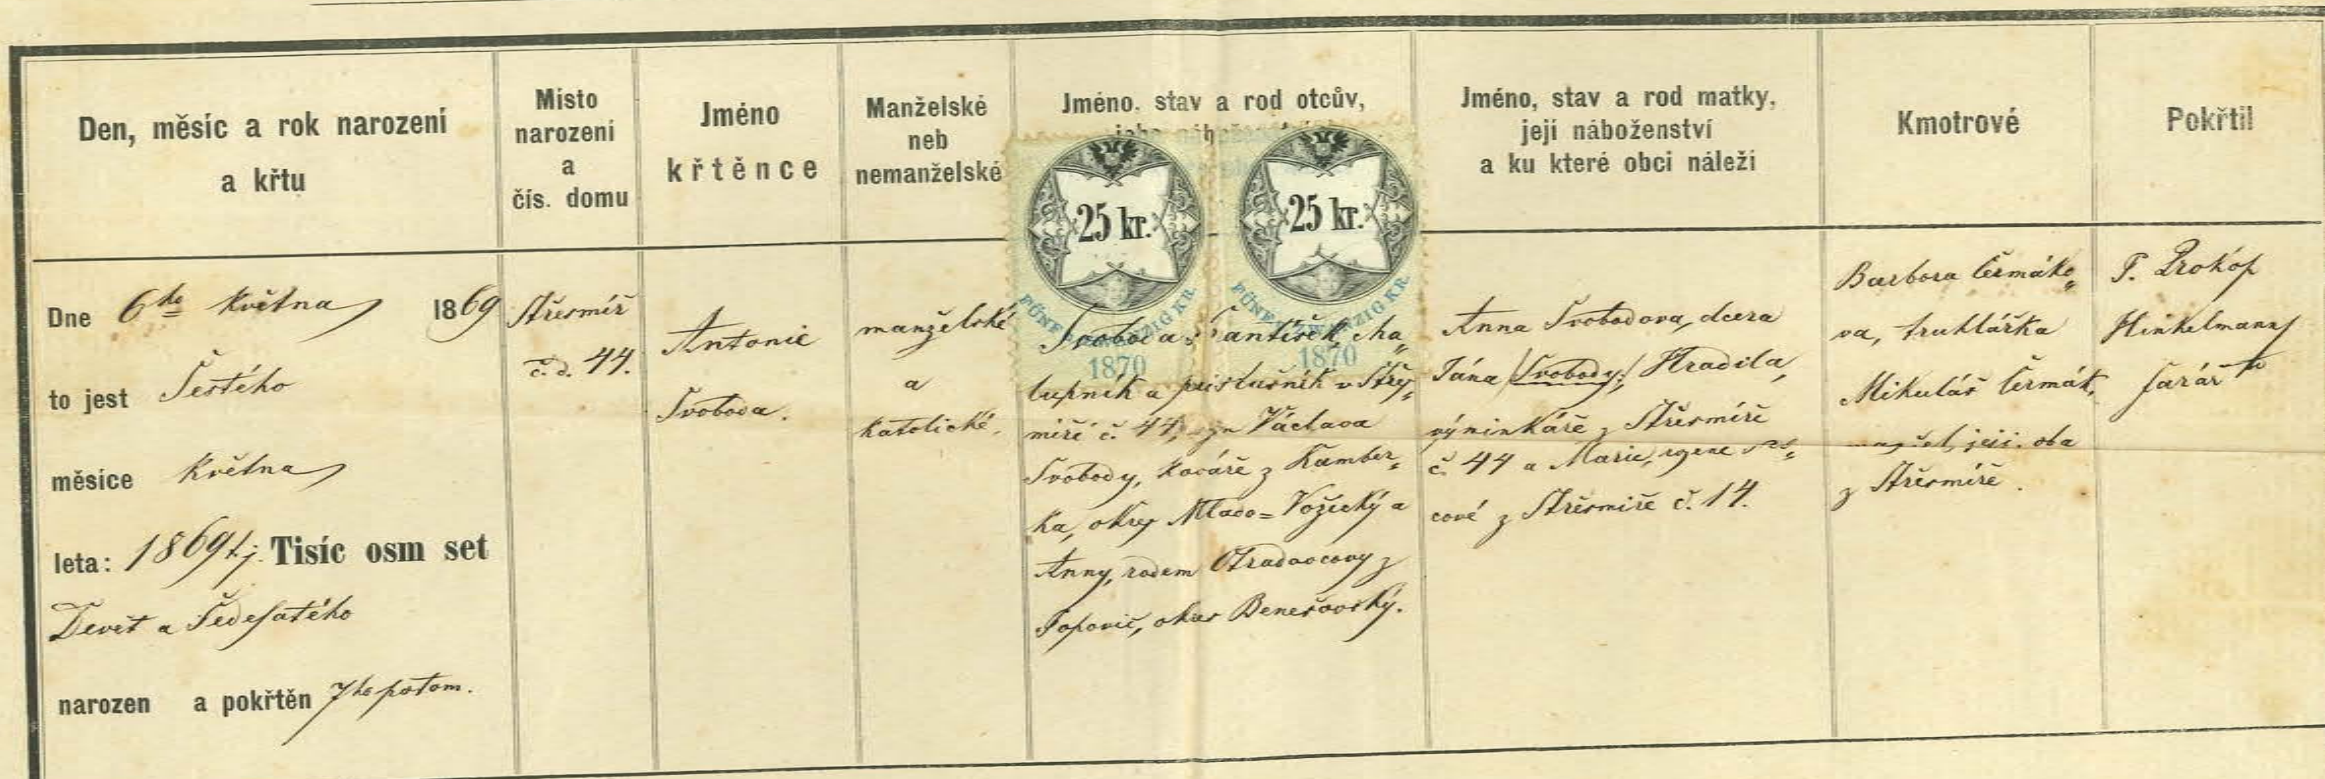 Den, měsíc a rok narození
a křtu
Místo
narození
a
čís. domu
Jméno
křtěnce
Manželské
neb
nemanželské
Jméno, stav a rod otcův,
25 kr.
25 kr.
FÜNF ZWANZIG KR.
FÜNF ZWANZIG KR.
1870
1870
Jméno, stav a rod matky,
její náboženství
a ku které obci náleží
Kmotrové
Pokřtil
Dne 6ho Května 1869
to jest Šestého
měsíce Května
leta: 1869 t.j. Tisíc osm set
Devět a Šedesatého
narozen a pokřtěn 7ho potom.
Střesmíř
č. d. 44.
Antonie
Svoboda.
manželské
a
katolické.
Svoboda František, cha„
lupník a příslušník v Stře„
miři č. 44, syn Václava
Svobody, kováře z Kamber„
ka, okres Mlado=Vožický a
Anny, rodem Otradovcovy z
Popovic, okres Benešovský.
Anna Svobodova, dcera
Jána /Svobody/ Hradila,
výminkáře z Střesmíře
č. 44 a Marie,
cové z Střesmíře č. 14.
Barbora Čermáko„
va, truhlářka
Mikuláš Čermák,
manžel její, oba
z Střesmíře.
P. Prokop
Hinkelmann
farář